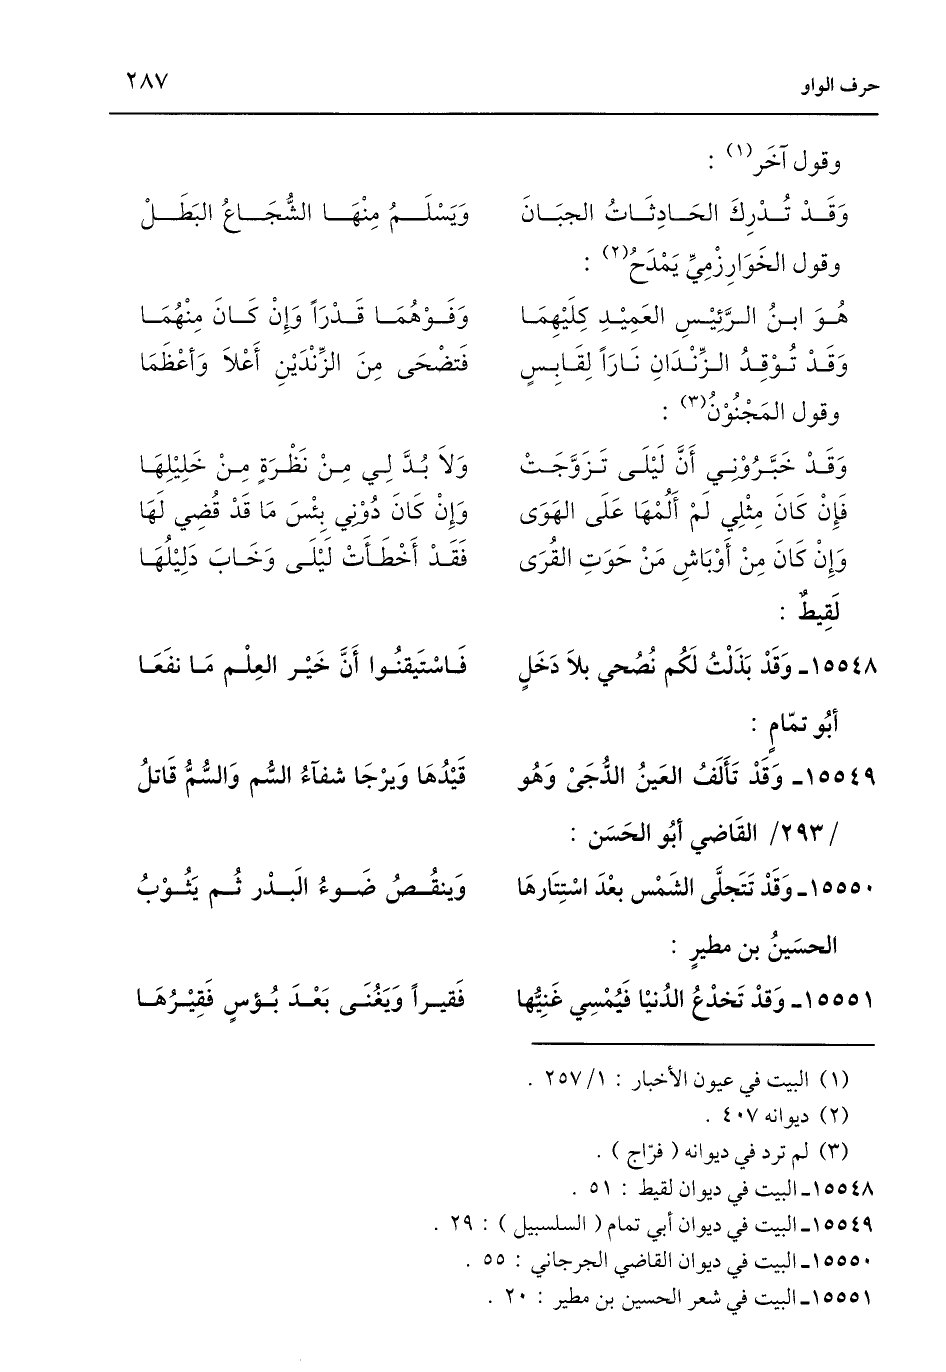 حرف الواو ٢٨٧
وقول آخَر(١) :
وَقَـدْ تُـدْرِكَ الحَـادِثَـاتُ الجبَـانَ وَيَسْلَـمُ مِنْهَـا الشُّجَـاعُ البَطَـلْ
وقول الخَوَارِزْمِيِّ يَمْدَحُ(٢) :
هُـوَ ابـنُ الـرَّئِيْـسِ العَمِيْـدِ كِلَيْهِمَـا وَفَـوْهُمَـا قَـدْرَاً وَإِنْ كَـانَ مِنْهُمَـا
وَقَـدْ تُـوْقِـدُ الـزِّنْـدَانِ نَـاراً لِقَـابِـسٍ فَتضْحَى مِنَ الزِّنْدَيْنِ أَعْلاَ وَأَعْظَمَا
وقول المَجْنُوْنُ(٣) :
وَقَـدْ خَبَّـرُوْنِـي أَنَّ لَيْلَى تـزَوَّجَـتْ وَلاَ بُـدَّ لِـي مِـنْ نَظْـرَةٍ مِـنْ خَلِيْلِهَـا
فَإِنْ كَانَ مِثْلِي لَمْ أَلُمْهَا عَلَى الهَوَى وَإِنْ كَانَ دُوْنِي بِئْسَ مَا قَدْ قُضِي لَهَا
وَإِنْ كَانَ مِنْ أَوْبَاشِ مَنْ حَوَتِ القُرَى فَقَـدْ أَخْطَـأَتْ لَيْلَـى وَخَـابَ دَلِيْلُهَـا
لَقِيطٌ :
١٥٥٤٨ـ وَقَدْ بَذَلْتُ لَكُم نُصُحي بلاَ دَخَلٍ فَـاسْتَيقنُـوا أَنَّ خَيْـر العِلْـم مَـا نفَعَـا
أبُو تمّامٍ :
١٥٥٤٩ـ وَقَدْ تَأَلَفُ العَينُ الدُّجَىْ وَهُو قَيْدُهَا وَيرْجَا شفآءُ السُّم وَالسُّمُّ قَاتلُ
/٢٩٣/ القَاضي أبُو الحَسَن :
١٥٥٥٠ـ وَقَدْ تَتَجلَّى الشَمْس بعْدَ اسْتِتَارهَا وَينقُـصُ ضَـوءُ البَـدْر ثُـم يَثُـوْبُ
الحسَينُ بن مطيرٍ :
١٥٥٥١ـ وَقدْ تَخدْعُ الدُنيْا فَيُمْسِي غَنِيُّها فَقيـراً وَيَغْنَـى بَعْـدَ بُـؤسٍ فَقِيْـرُهَـا
(١) البيت في عيون الأخبار : ١/ ٢٥٧ .
(٢) ديوانه ٤٠٧ .
(٣) لم ترد في ديوانه ( فرّاج ) .
١٥٥٤٨ـ البيت في ديوان لقيط : ٥١ .
١٥٥٤٩ـ البيت في ديوان أبي تمام ( السلسبيل ) : ٢٩ .
١٥٥٥٠ـ البيت في ديوان القاضي الجرجاني : ٥٥ .
١٥٥٥١ـ البيت في شعر الحسين بن مطير : ٢٠ .